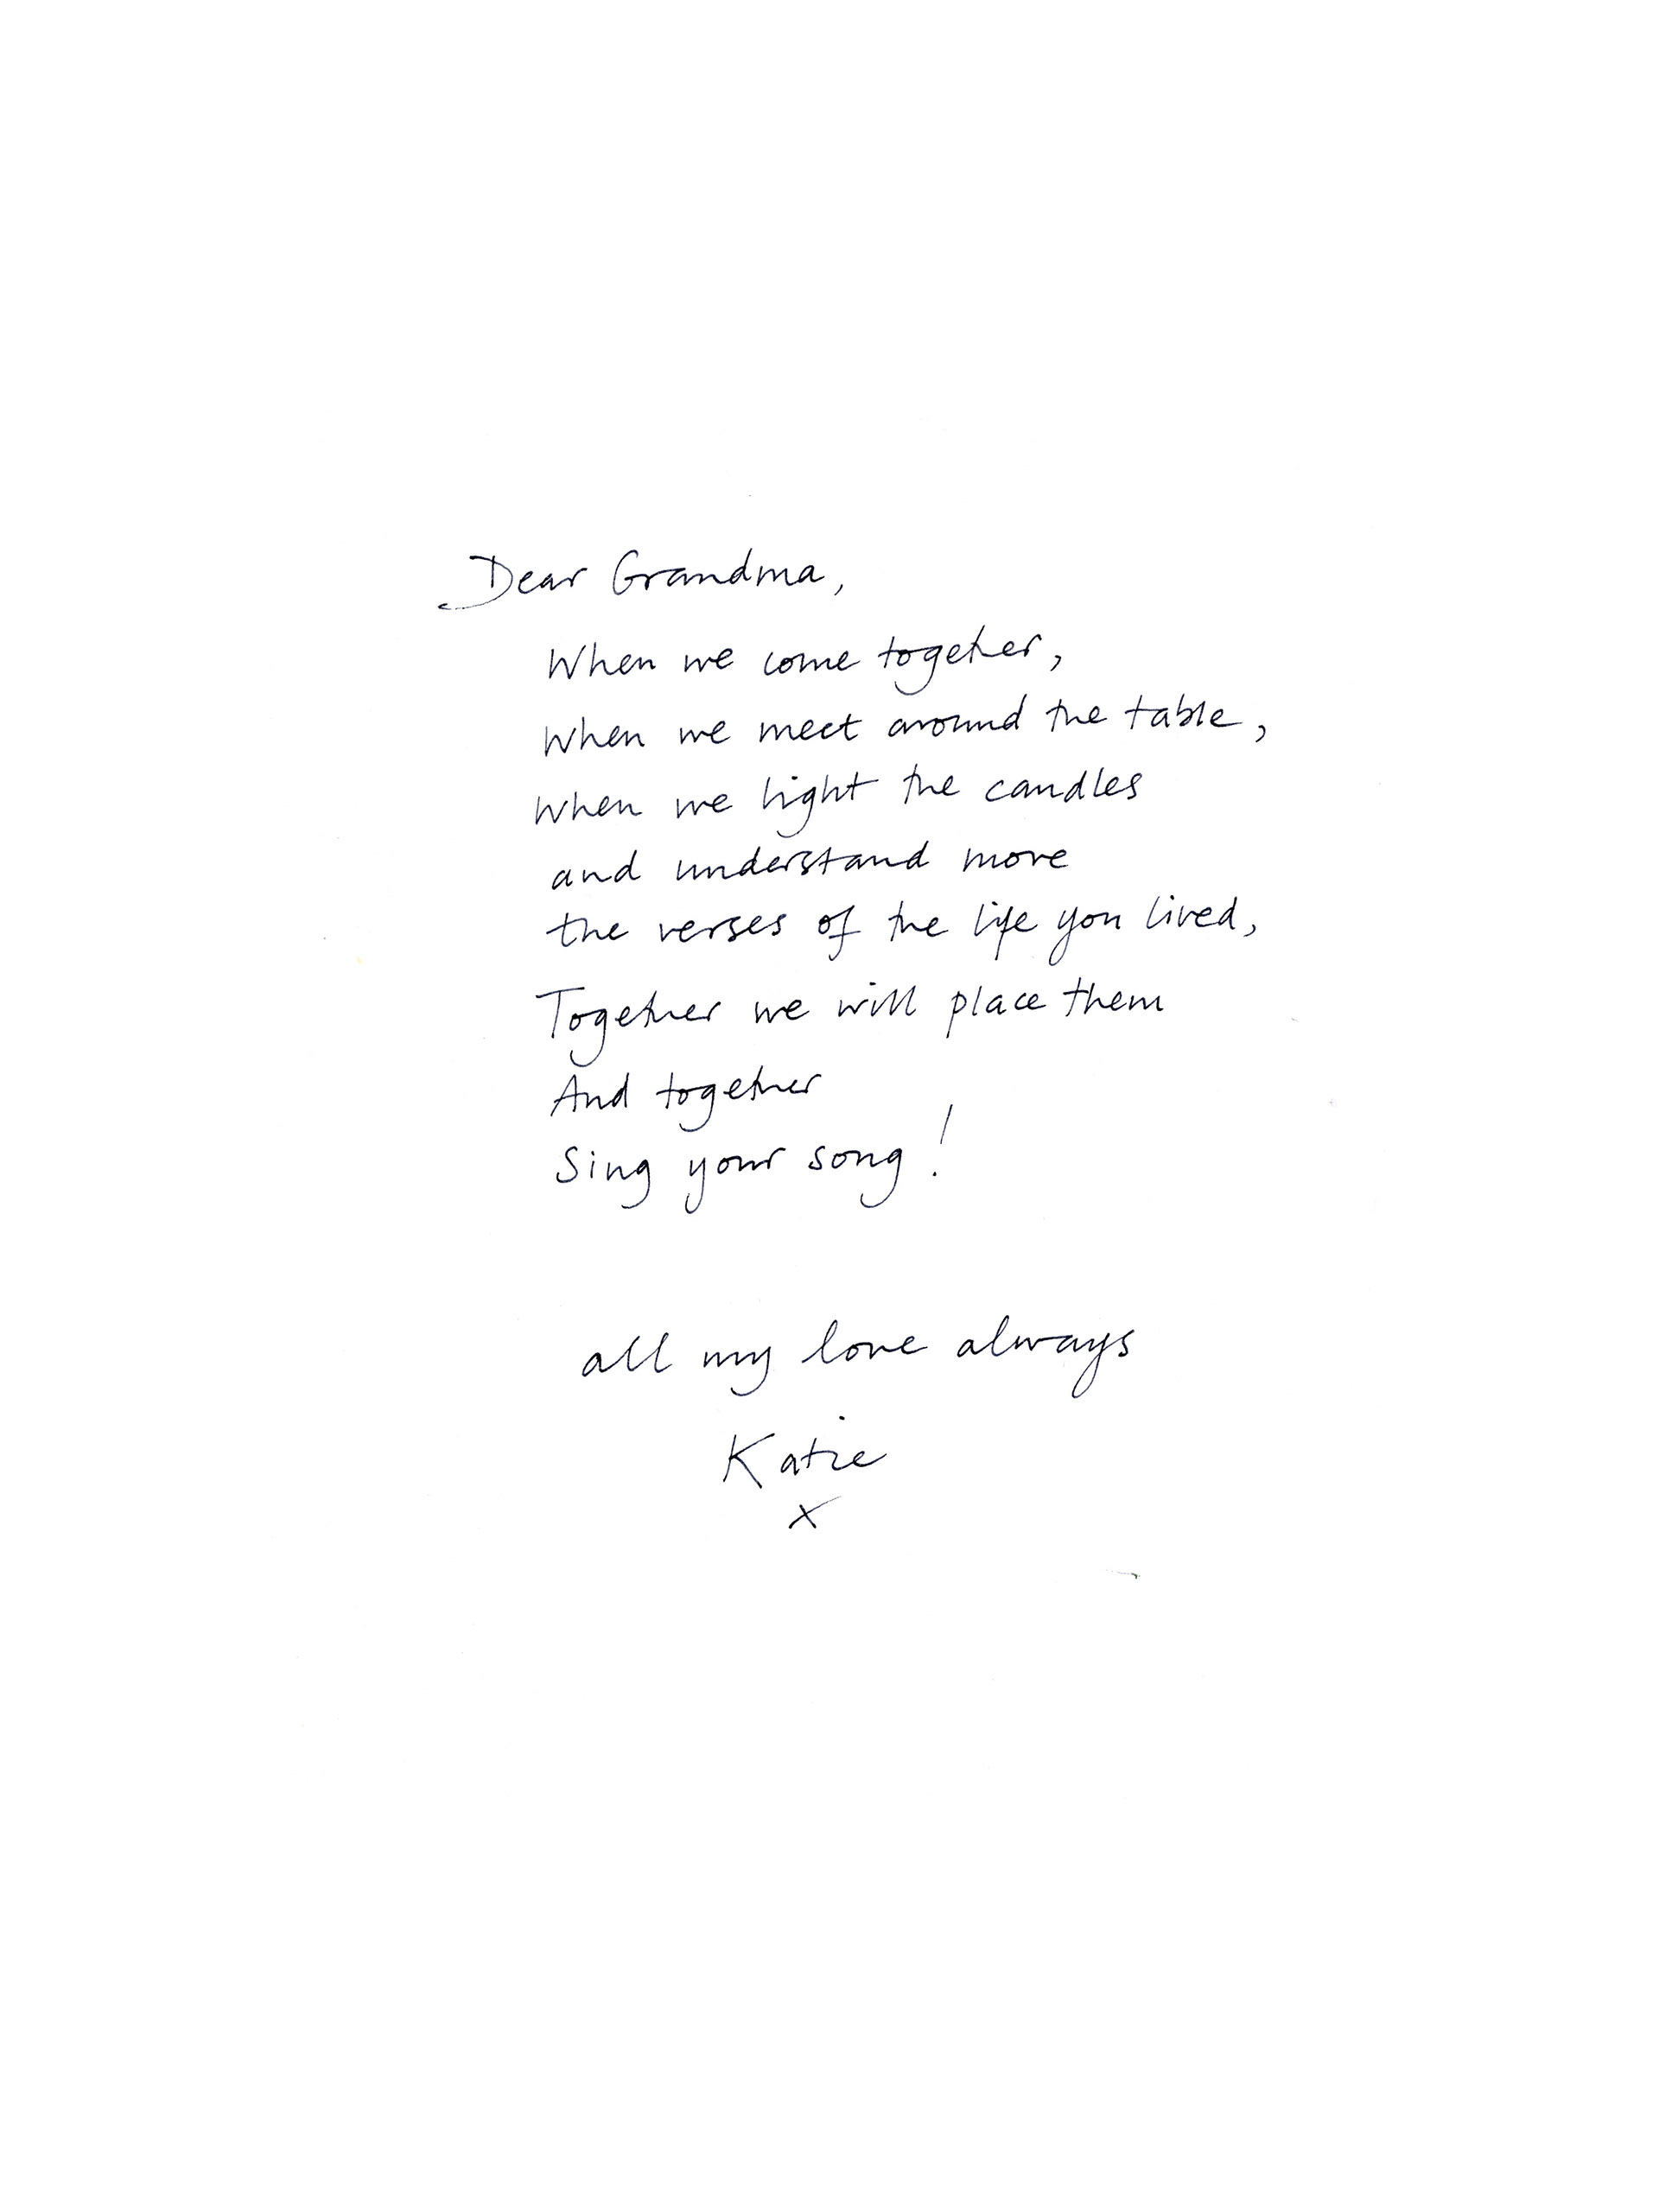 Dear Grandma,
When we come together,
When we meet around the table,
When we light the candles
and understand more
the verses of the life you lived,
Together we will place them
And together
Sing your song!
all my love always
Katie
x